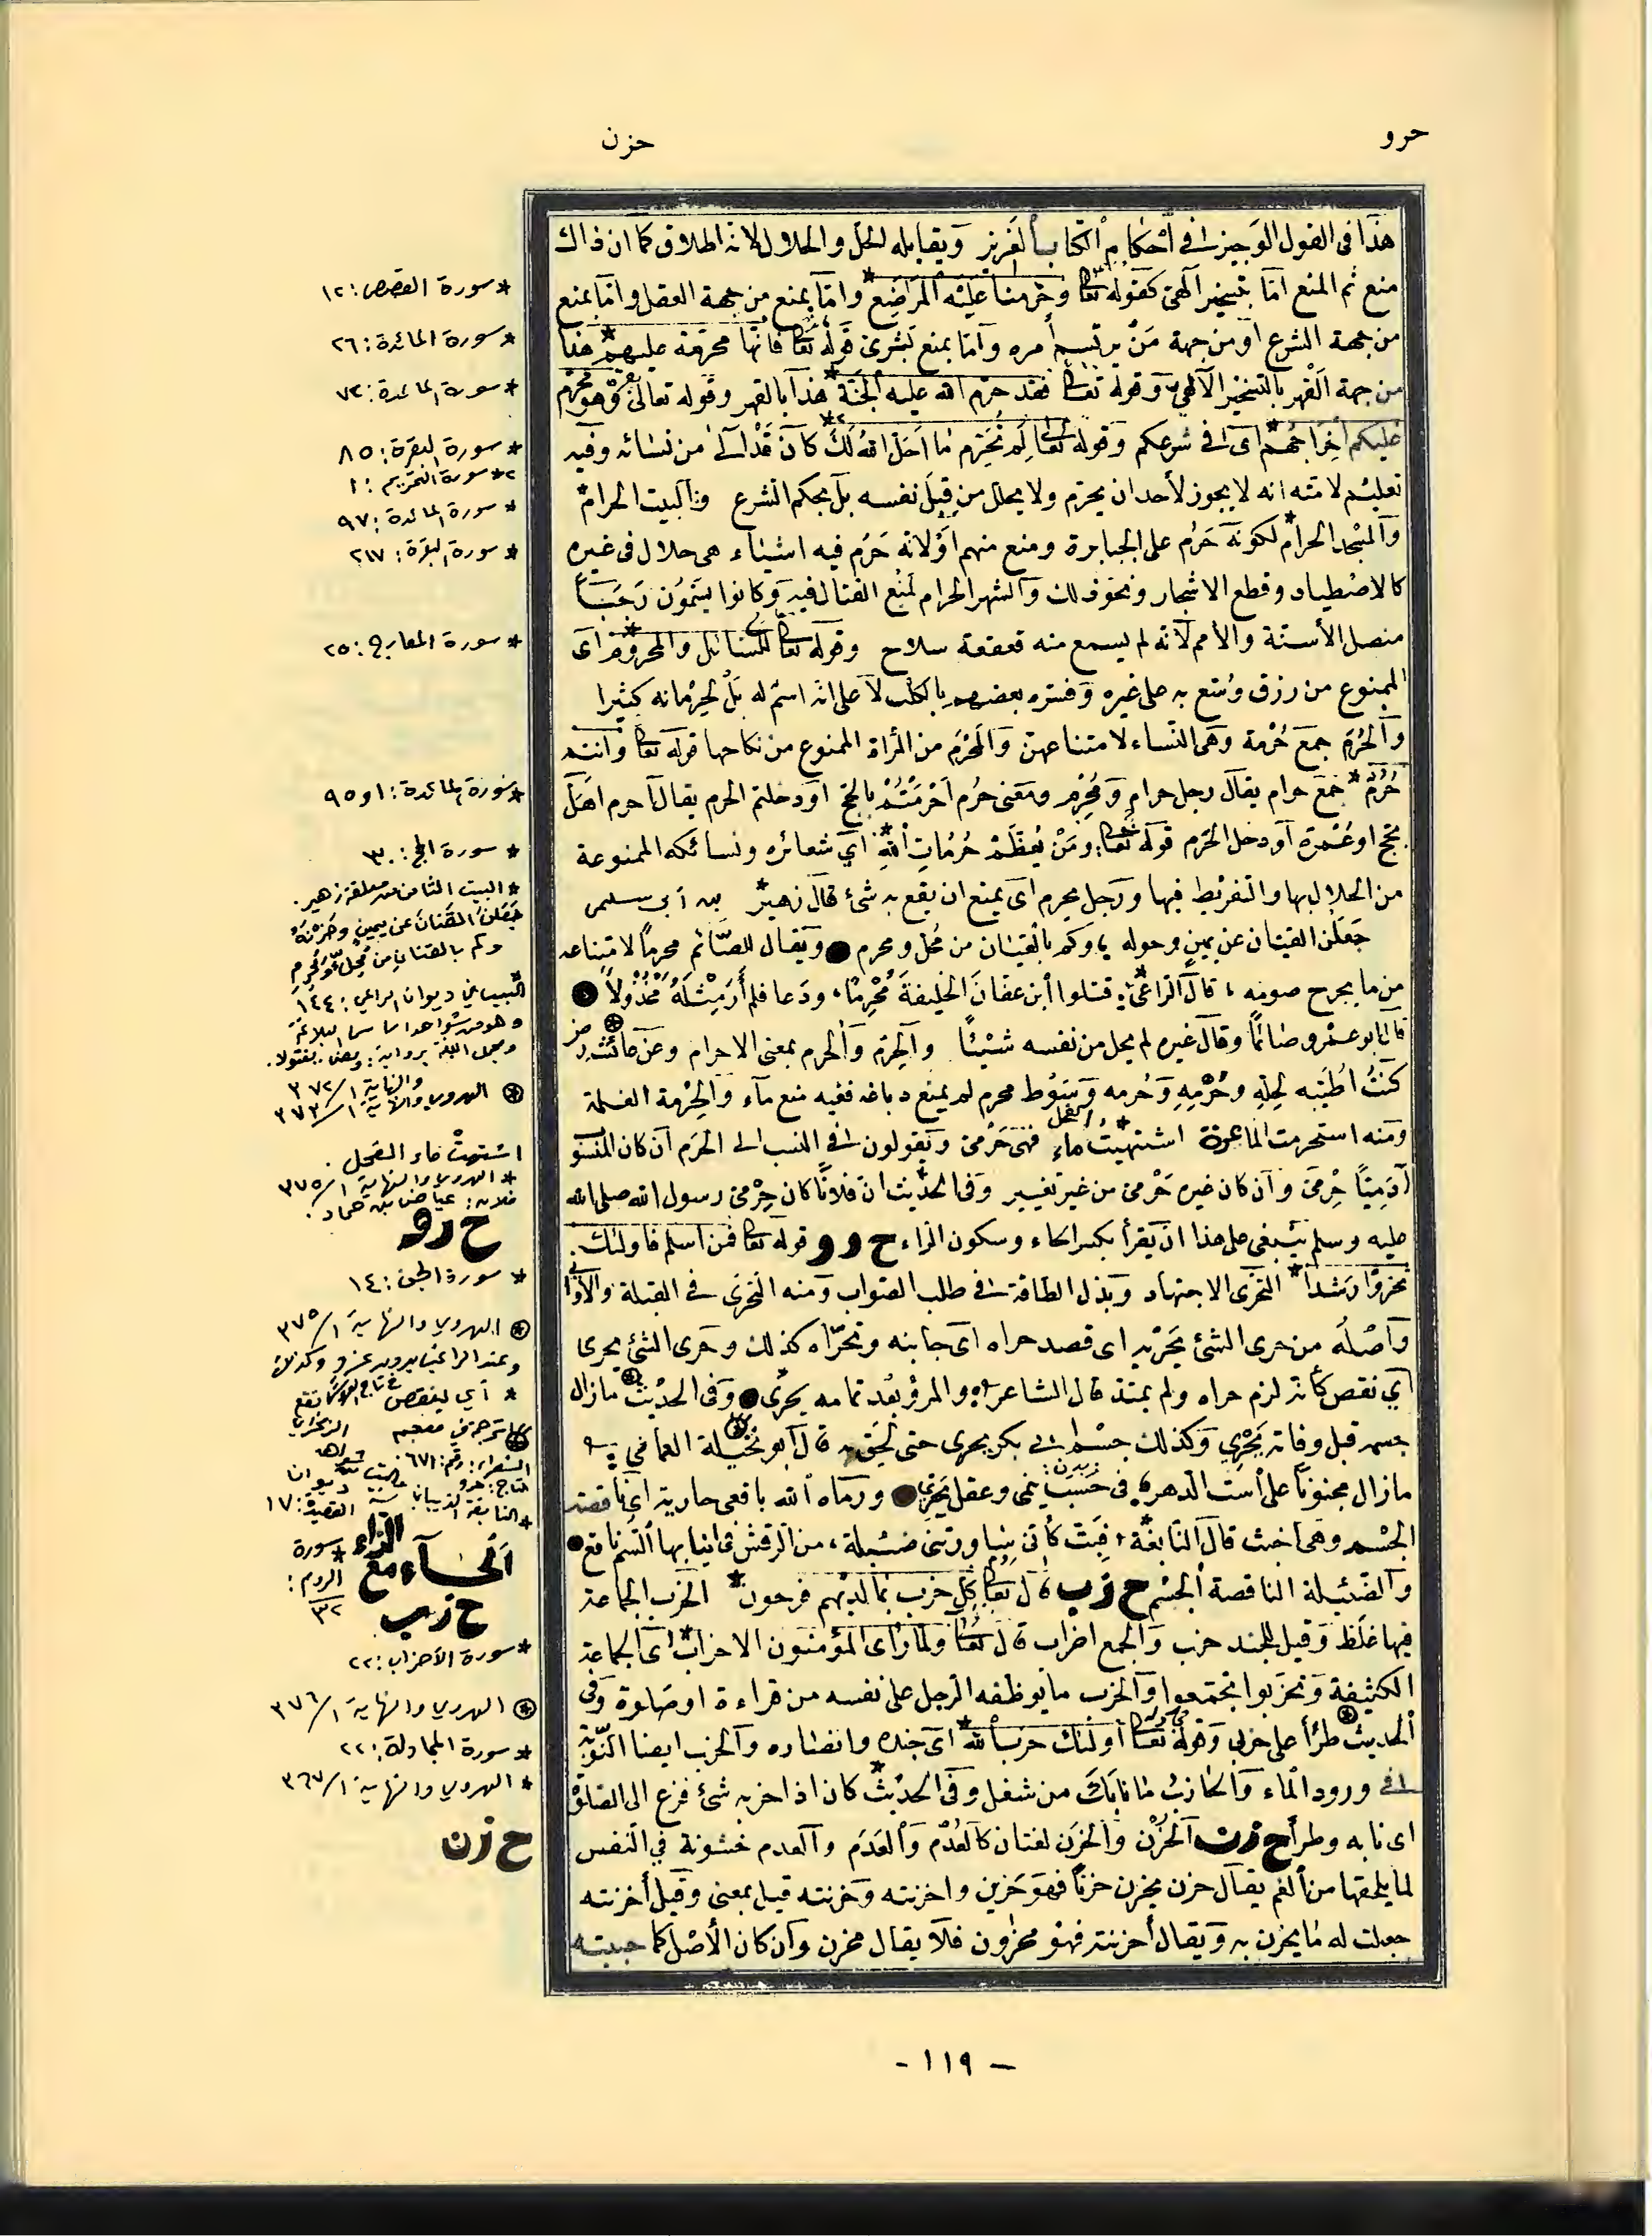 حرو
حزن
هذا فى القول الوجيز فى أحكام الكتاب العزيز ويقابله الحل والحلال لانه اطلاق كما ان ذاك
منع ثم المنع اما بتسخير آلهى كقوله تعا وحرمنا عليه المراضع * واما بمنع من جهة العقل واما بمنع
من جهة الشرع او من جهة من يرتسم أمره واما بمنع بشرى قوله تعا فانها محرمة عليهم * هذا
من جهة القهر بالتسخير الآلهى وقوله تعا فقد حرم الله عليه الجنة * هذا بالقهر وقوله تعالى وهو محرم
عليكم اخراجهم * اى فى شرعكم وقوله تعا لم تحرم ما احل الله لك *٢ كان قد آلى من نسائه وفيه
تعليم لامته انه لا يجوز لأحد ان يحرم ولا يحلل من قبل نفسه بل بحكم الشرع والبيت الحرام *
والمسجد الحرام * لكونه حرم على الجبابرة ومنع منهم او لانه حرم فيه اشياء هى حلال فى غيره
كالاصطياد وقطع الاشجار ونحو ذلك والشهر الحرام لمنع القتال فيه وكانوا يسمون رجبا
منصل الأسنة والأصم لانه لم يسمع منه قعقعة سلاح وقوله تعا للسائل والمحروم * اى
الممنوع من رزق وسع به على غيره وفسره بعضهم بالكلب لا على انه اسم له بل لحرمانه كثيرا
والحرم جمع حرمة وهى النساء لامتناعهن والمحرم من المرأة الممنوع من نكاحها قوله تعا وانتم
حرم * جمع حرام يقال رجل حرام ومحرم ومعنى حرم احرمتم بالحج او دخلتم الحرم يقال احرم اهل
بحج او عمرة او دخل الحرم قوله تعا ومن يعظم حرمات الله * أي شعائره ونسائكه الممنوعة
من الحلال بها والتفريط فيها ورجل محرم اى يمنع ان يقع به شئ قال زهير * بن أبى سلمى
جعلن القنان عن يمين وحوله ، وكم بالقنان من محل ومحرم ● ويقال للصائم محرما لامتناعه
من ما يجرح صومه ، قال الراعى * : قتلوا ابن عفان الخليفة محرما ، ودعا فلم أر مثله مخذولا ●
قال ابو عمرو صائما وقال غيره لم يحل من نفسه شيئا والحرم والحرم بمعنى الاحرام وعن عائشة رضـ
كنت اطيبه لحله وحرمه وحرمه وسوط محرم لم يمنع دباغه ففيه منع ماء والحرمة الغلمة
ومنه استحرمت الماعزة اشتهيت ماء * الفحل فهى حرمى ويقولون فى النسب الى الحرم ان كان المنسو
آدميا حرمى وان كان غيره حرمى من غير تغيير وفى الحديث ان فلانا كان حرمى رسول الله صلى الله
عليه وسلم ينبغى على هذا ان يقرأ بكسر الحاء وسكون الراء ح ر و قوله تعا فمن اسلم فاولئك
تحروا رشدا * التحرى الاجتهاد وبذل الطاقة فى طلب الصواب ومنه التحرى فى القبلة والاوانى
وأصله من حرى الشئ يحريه اى قصد حراه اى جانبه وتحراه كذلك وحرى الشئ يحرى
أي نقص كأنه لزم حراه ولم يمتد قال الشاعر والمرؤ بعد تمامه يحرى ● وفى الحديث مازال
جسمه قبل وفاته يحرى وكذلك جسم ابى بكر يحرى حتى لحق به قال ابو نخيلة العمانى
مازال مجنونا على است الدهر فى حسب ينمى وعقل يحرى ● ورماه الله بافعى حارية اى ناقصة
الجسم وهى اخبث قال النابغة * فبت كأنى ساورتنى ضئيلة ، من الرقش فى انيابها السم ناقع ●
والضئيلة الناقصة الجسم ح ز ب قال تعا كل حزب بما لديهم فرحون * الحزب الجماعة
فيها غلظ وقيل للجند حزب والجمع احزاب قال تعا ولما رأى المؤمنون الاحزاب * اى الجماعة
الكثيفة وتحزبوا تجمعوا والحزب ما يوظفه الرجل على نفسه من قراءة او صلوة وفى
الحديث طرأ على حزبى وقوله تعا اولئك حزب الله * اى جنده وانصاره والحزب ايضا النوبة
فى ورود الماء والحازب ما نابك من شغل وفى الحديث * كان اذا حزبه شئ فزع الى الصلوة
اى نابه وطرأ ح ز ن الحزن والحزن لغتان كالعدم والعدم والعدم خشونة في النفس
لما يلحقها من الغم يقال حزن يحزن حزنا فهو حزين واحزنته وحزنته قيل بمعنى وقيل أحزنته
جعلت له ما يحزن به ويقال أحزنته فهو محزون فلا يقال محزن وان كان الأصل كما حببته
* سورة القصص : ١٢
* سورة المائدة : ٢٦
* سورة المائدة : ٧٢
* سورة البقرة : ٨٥
٢* سورة التحريم : ١
* سورة المائدة : ٩٧
* سورة البقرة : ٢١٧
* سورة المعارج : ٢٥
* سورة المائدة : ١ و ٩٥
* سورة الحج : ٣٠
* البيت الثامن من معلقة زهير .
جعلن القنان عن يمين وحزنه
وكم بالقنان من محل ومحرم
* البيت في ديوان الراعي : ١٤٤
⊛ الهروي والنهاية ١/٣٧٢
٣٧٣/١
اشتهت ماء الفحل .
* الهروي والنهاية ١/٣٧٥
فلان : عياض بن حماد .
ح ر و
* سورة الجن : ١٤
⊛ الهروي والنهاية ١/٣٧٥
* أي ينقص
الشعراء : رقم : ٦٧١
القصيدة : ١٧
الحاء مع الزاء
* سورة الروم : ٣٢
ح ز ب
* سورة الأحزاب : ٢٢
⊛ الهروي والنهاية ١/٣٧٦
* سورة المجادلة : ٢٢
* الهروي والنهاية ١/٣٦٧
ح ز ن
- ١١٩ -